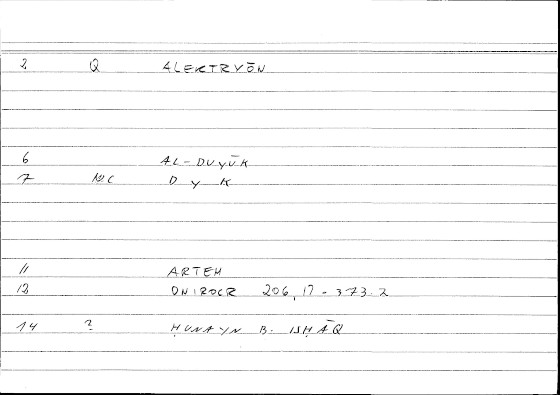 2 Q ALEKTRYŌN
6 AL-DUYŪK
7 NC D Y K
11 ARTEM
12 ONIROCR 206,17 - 373.2
14 ? ḤUNAYN B. ISḤĀQ